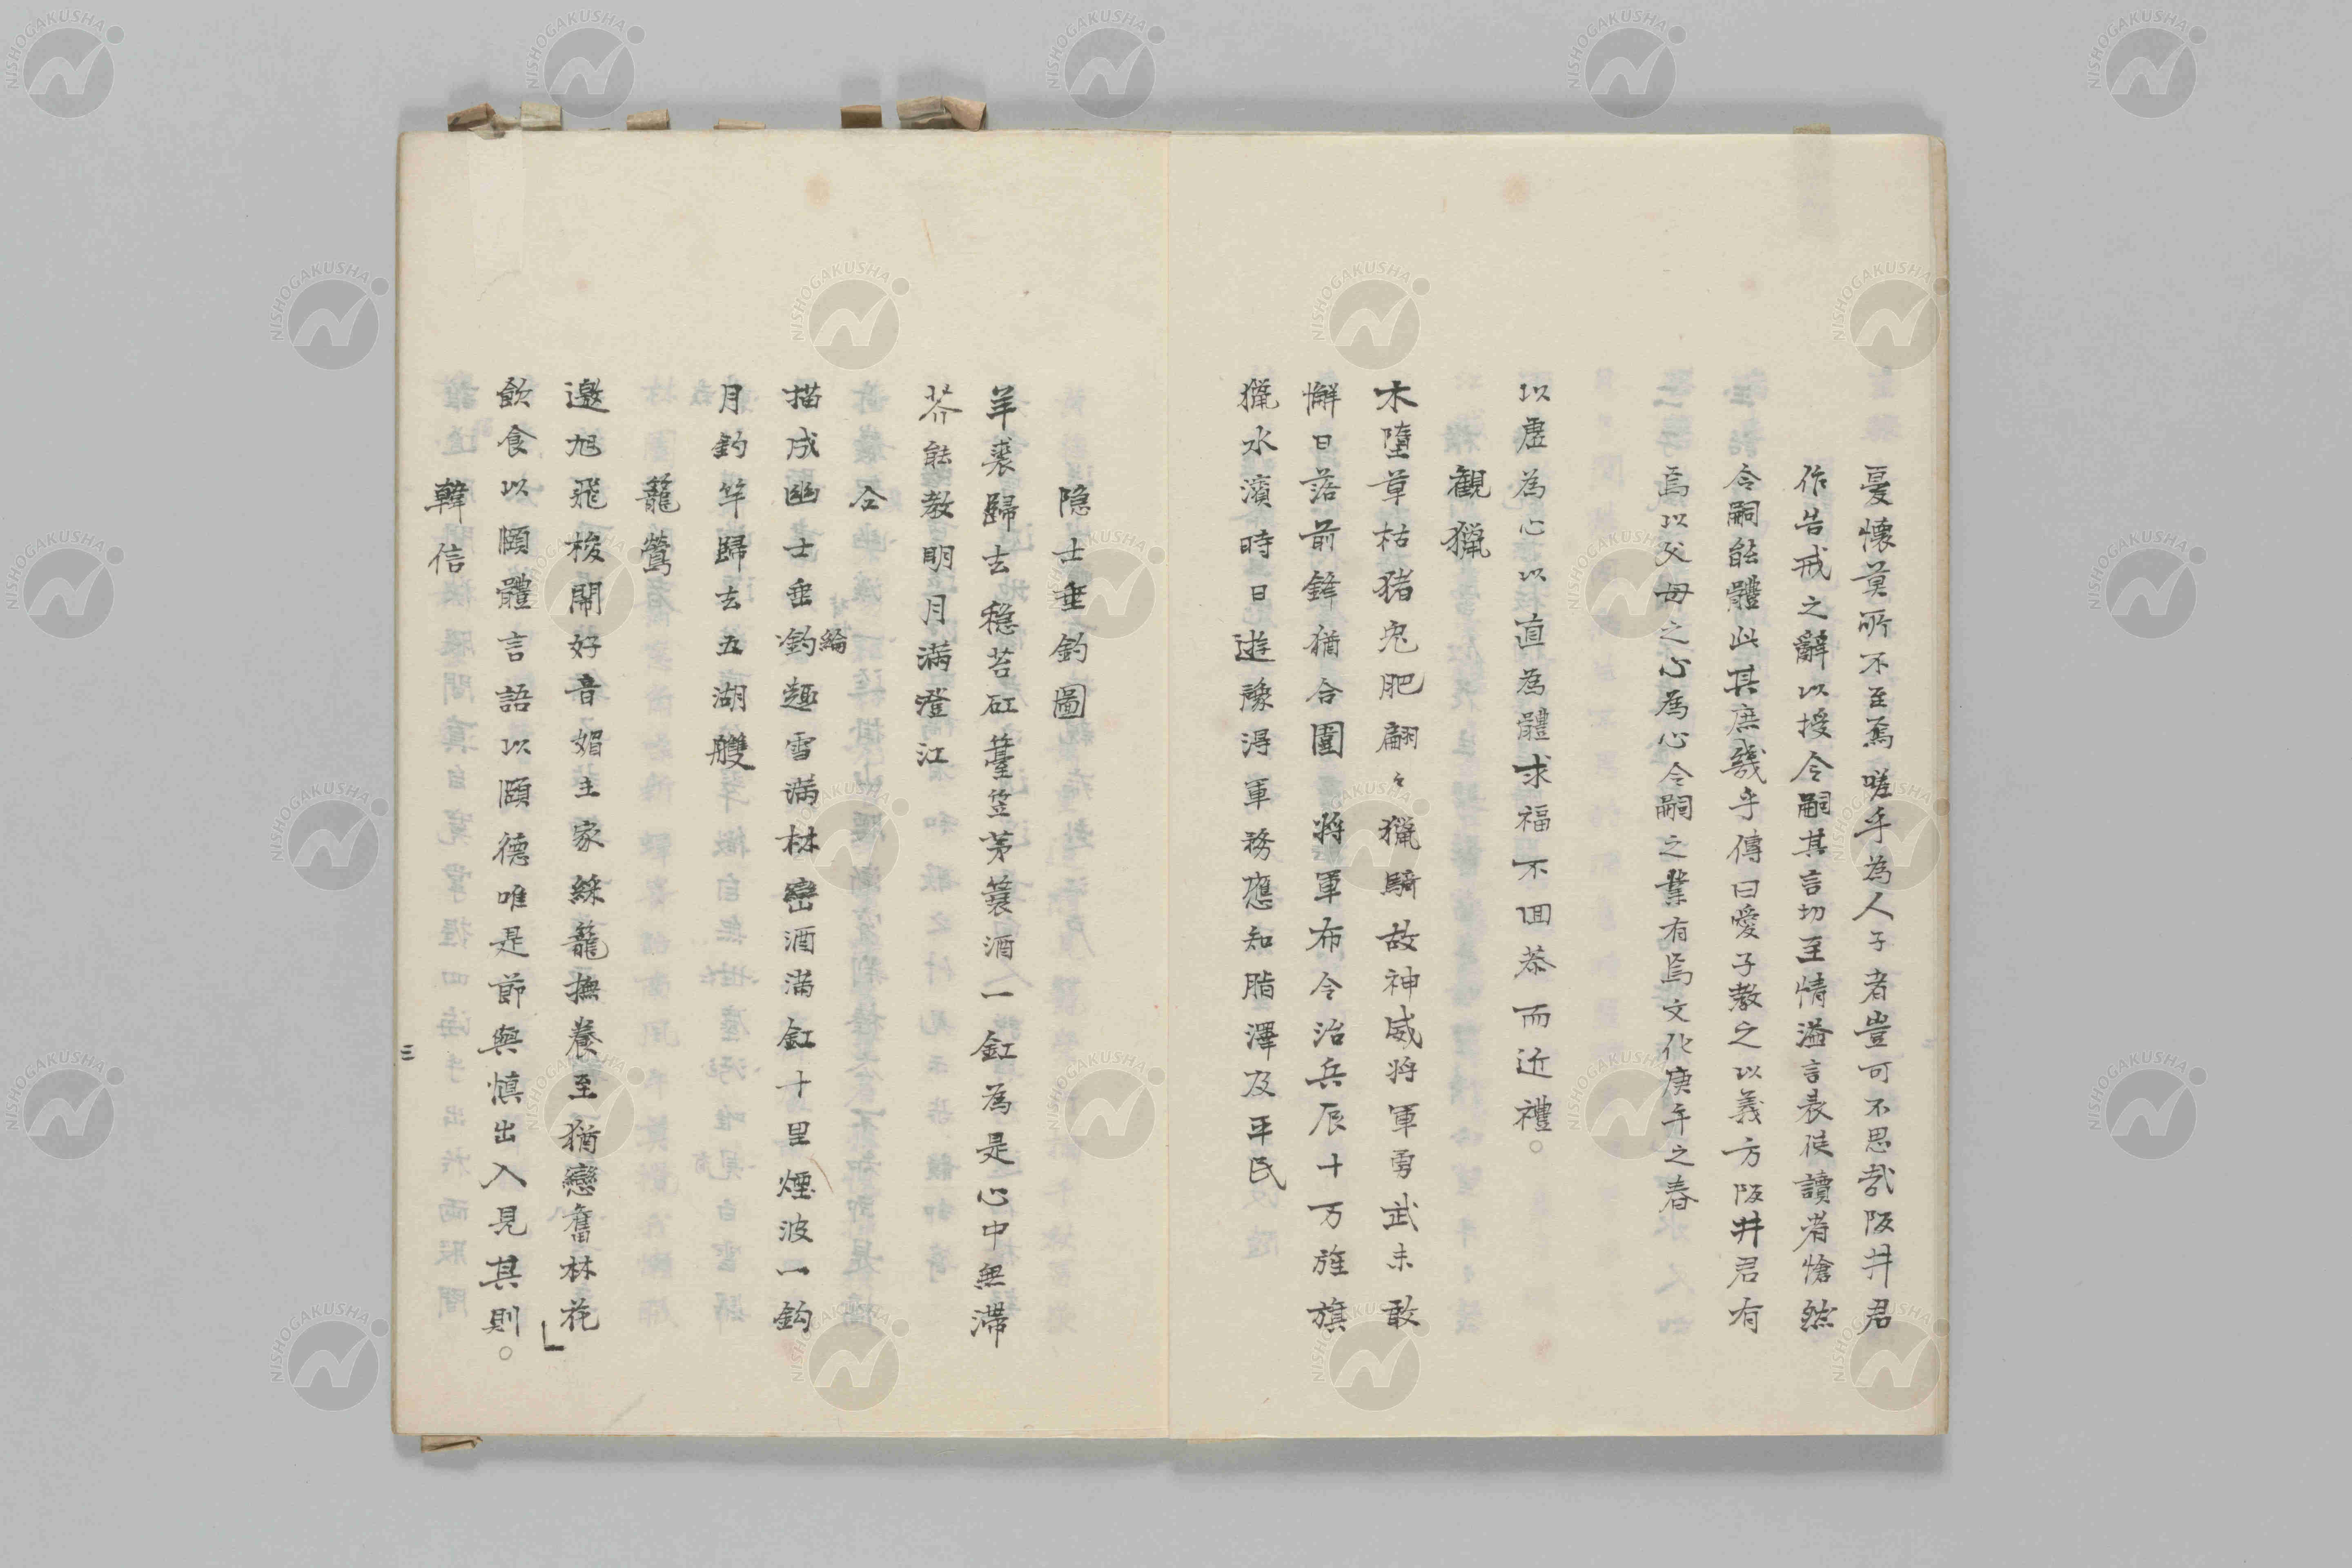 憂懷莫所不至焉嗟乎為人子者豈可不思哉阪井君
作告戒之辭以授令嗣其言切至情溢言表使讀者愴然
令嗣能體此其庶幾乎傳曰愛子教之以義方阪井君有
焉以父母之心為心令嗣之業有焉文化庚午之春
以虛為心以直為體求福不回恭而近禮。
觀獵
木墮草枯猪兔肥翩々獵騎故神威将軍勇武未敢
懈日落前鋒猶合圍 将軍布令治兵辰十万旌旗
獵水濱時日遊豫得軍務應知脂澤及平民
隐士垂釣圖
羊裘歸去穩苔矼䑓笠茅蓑酒一缸為是心中無滯
芥能教明月満澄江
仝
描成幽士垂釣趣雪満林巒酒満缸十里煙波一鈎
綸
月釣竿歸去五湖艭
籠鶯
邀旭飛梭鬧好音媚主家綵籠撫養至猶戀舊林花
飲食以頤體言語以頤德唯是節與慎出入見其則。
韓信
三
NISHOGAKUSHA